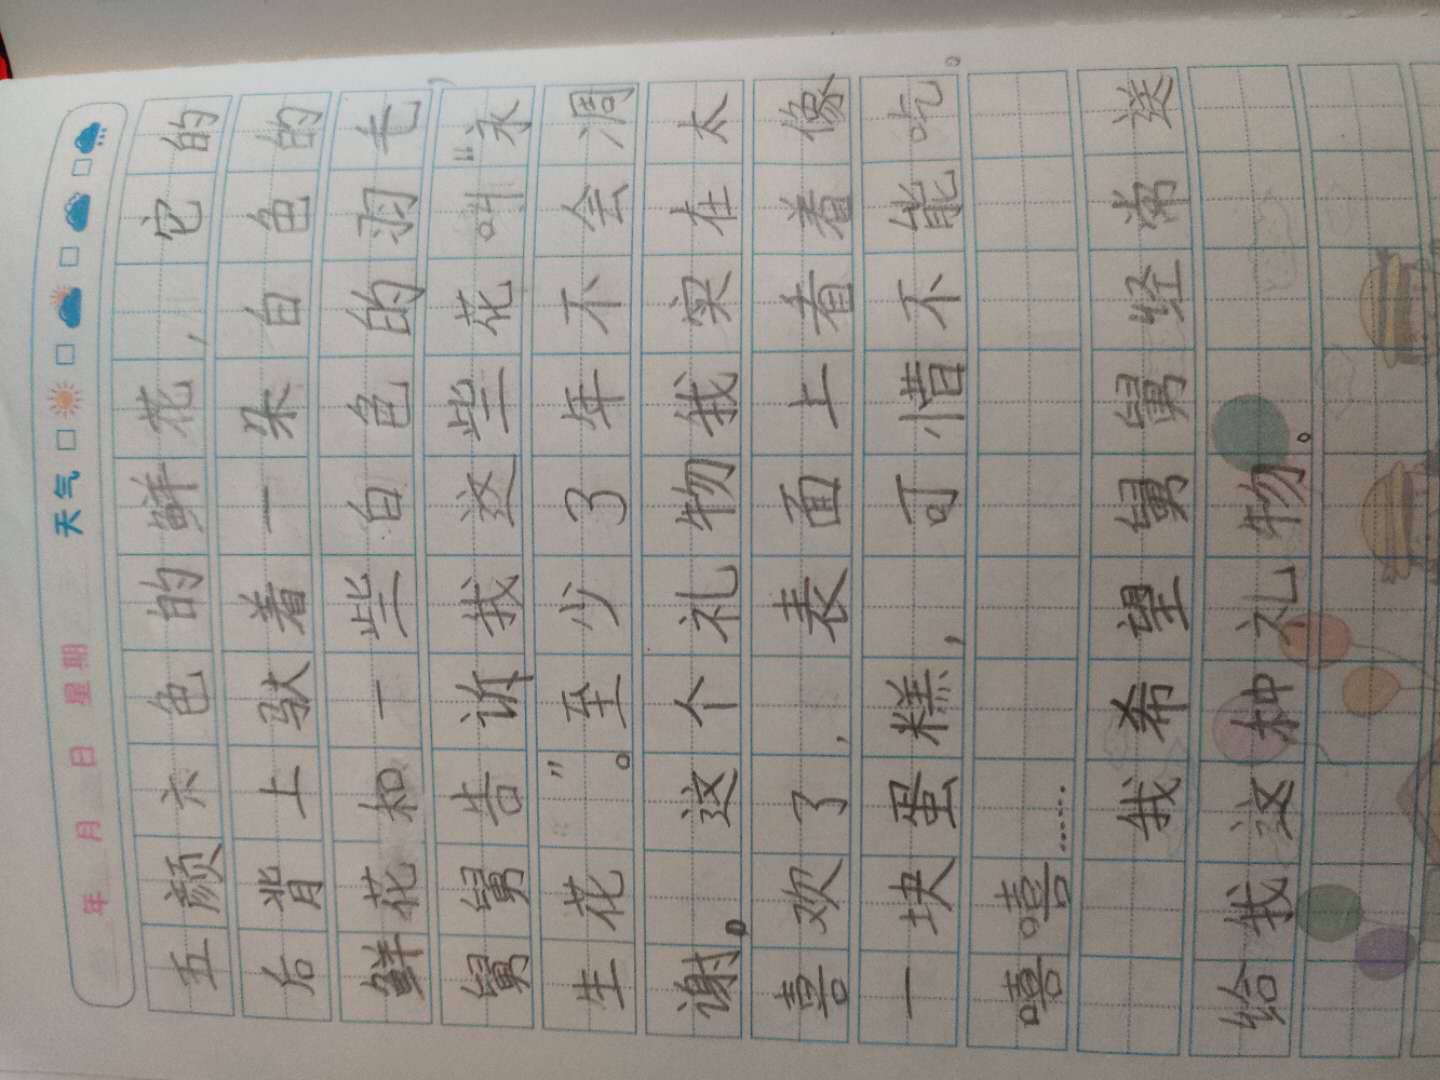 年 月 日 星期 天气
五颜六色的鲜花，它的
后背上驮着一朵白色的
鲜花和一些白色的羽毛，
舅舅告诉我这些花叫“永
生花”。至少3年不会凋
谢。这个礼物我实在太
喜欢了，表面上看着像
一块蛋糕，可惜不能吃。
嘻嘻……
我希望舅舅经常送
给我这种礼物。